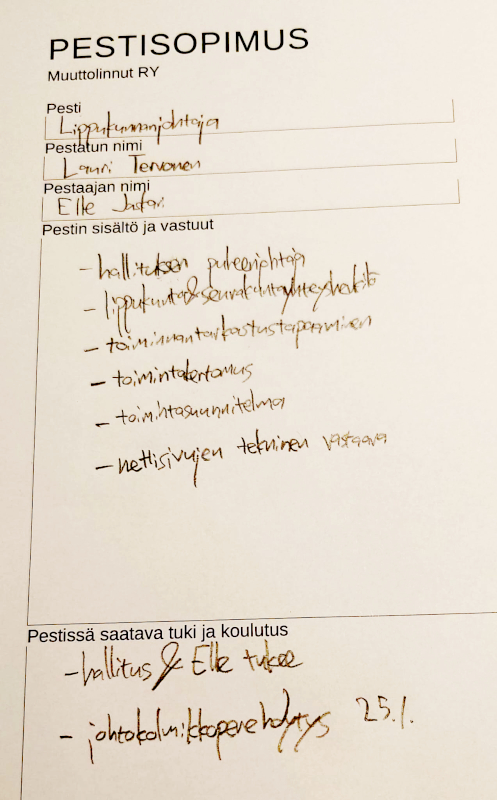 PESTISOPIMUS
Muuttolinnut RY
Pesti
Lippukunnanjohtaja
Pestatun nimi
Lauri Tervonen
Pestaajan nimi
Elle
Pestin sisältö ja vastuut
- hallituksen puheenjohtaja
- lippukunta&seurakuntayhteyshenkilö
- toiminnantarkastustapaaminen
- toimintakertomus
- toimintasuunnitelma
- nettisivujen tekninen vastaava
Pestissä saatava tuki ja koulutus
- hallitus & Elle tukee
- johtokolmikkoperehdytys 25.1.